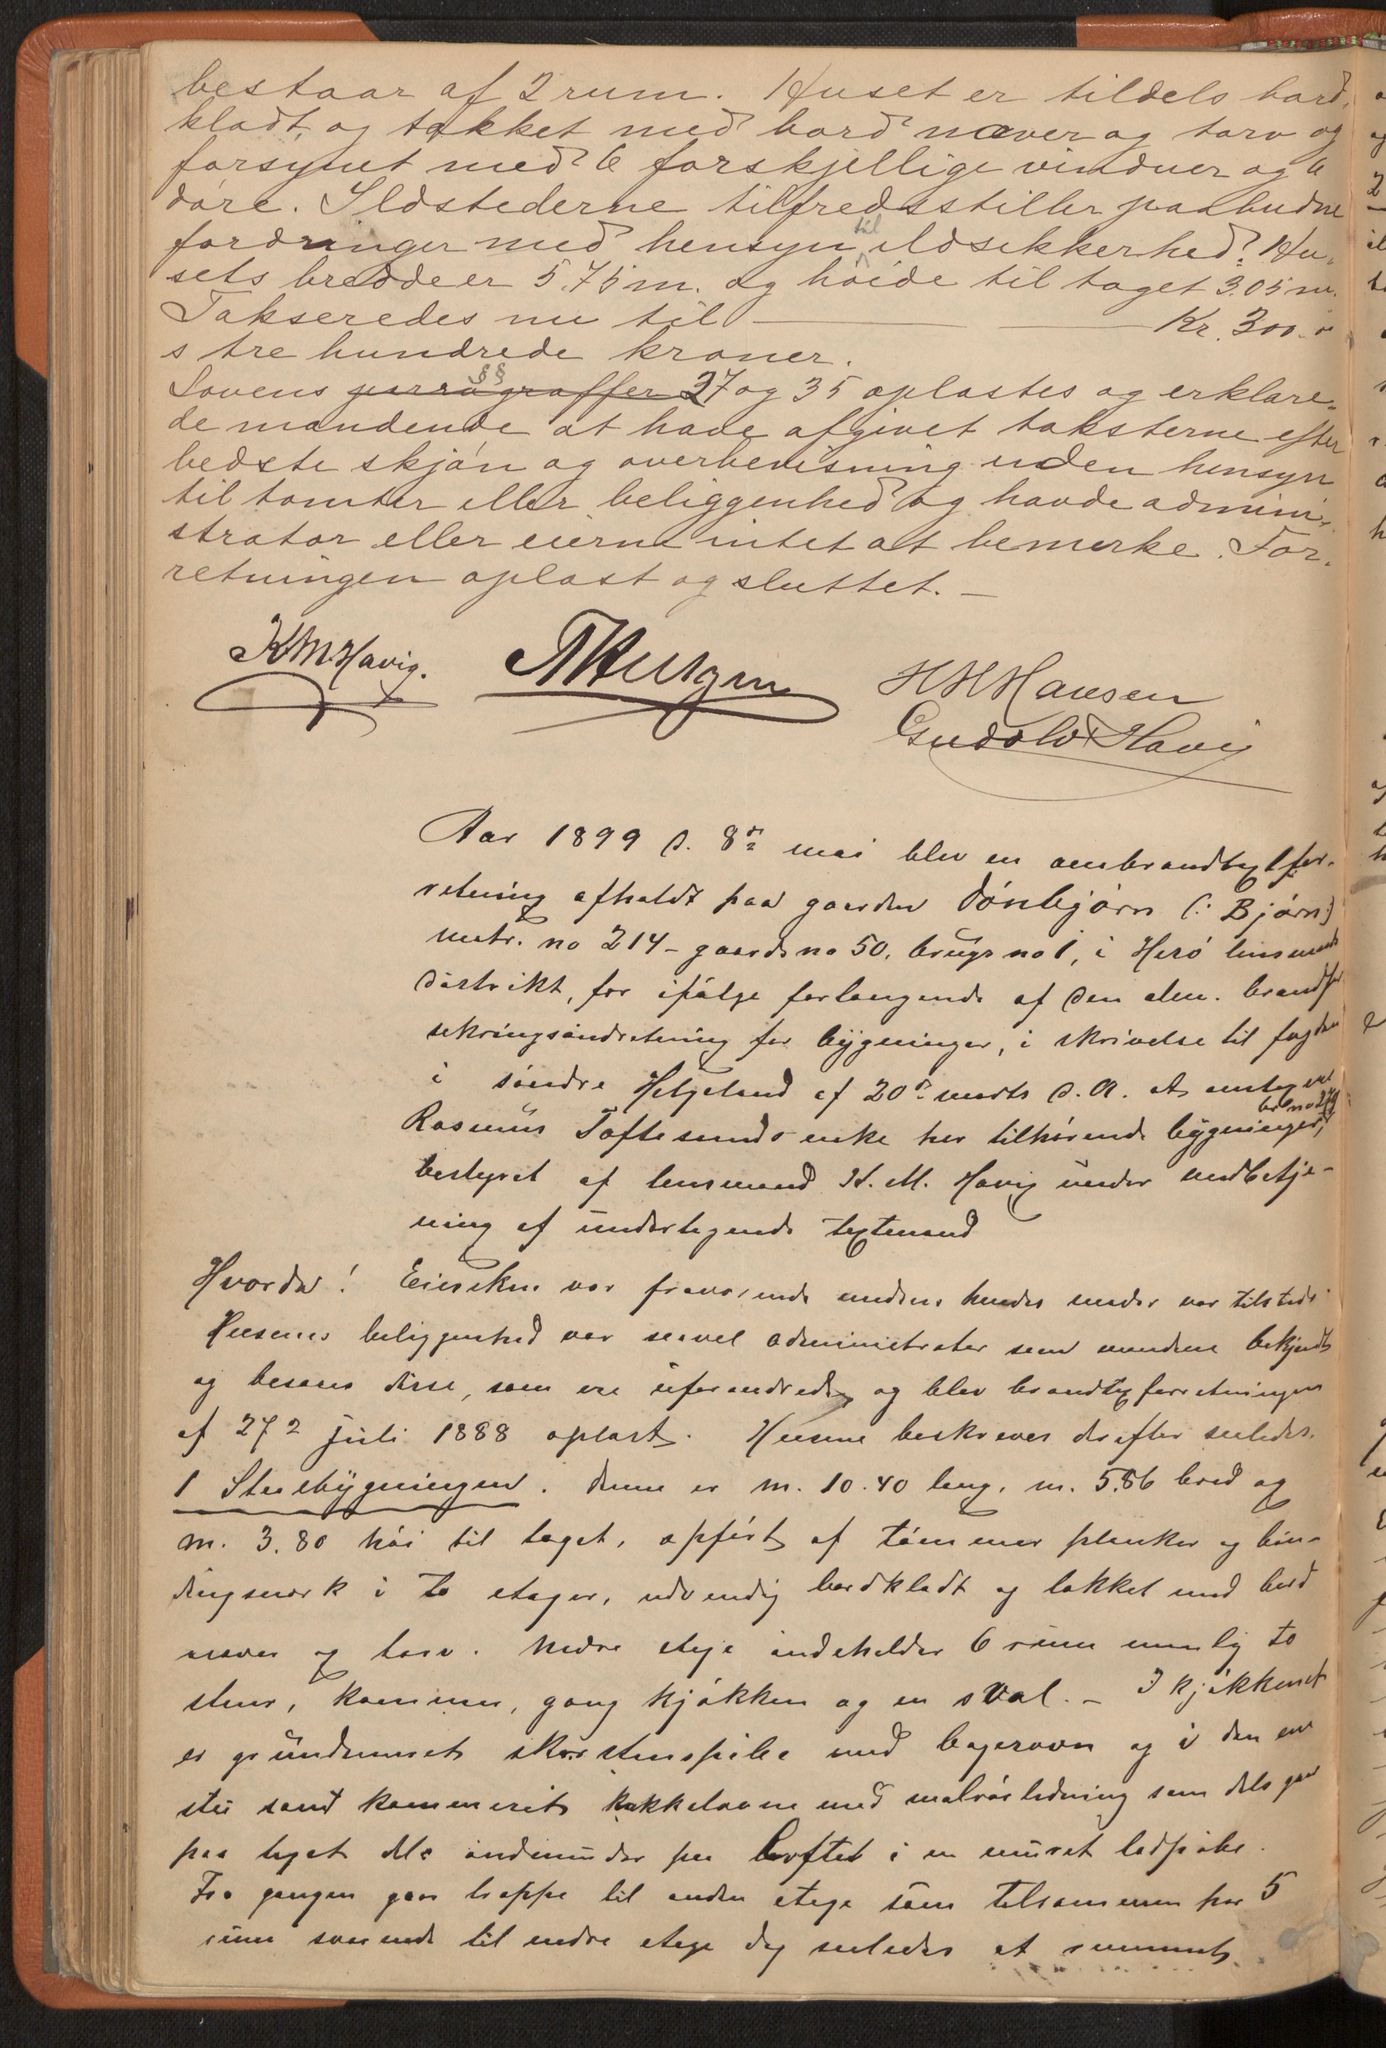 bestaar af 2 rum. Huset er tildels bord,
klædt, og tækket med bord næver og torv og
forsynet med 6 forskjellige vinduer og 6
døre. Ildstederne tilfredsstiller paabudne
fordringer med hensyn til ildsikkerhed. Hu-
sets bredde er 5.75 m. og høide til taget 3.05 m.
Takseredes nu til — — Kr. 300.0
s tre hundrede kroner.
Lovens parragraffer §§ 27 og 35 oplæstes og erklære-
de mændende at have afgivet taksterne efter
bedste skjøn og overbevisning uden hensyn
til tomter eller beliggenhed og havde admini-
strator eller eierne intet at bemerke. For-
retningen oplæst og sluttet. —
K M Havig.
H H Hansen
Gudolv Havig
Aar 1899 d. 8de mai blev en ombrandtaxtfor-
retning afholdt paa gaarden Dønbjørn (: Bjørn:)
matr. no 214 - gaards no 50, brugs no 1, i Herø lensmands
distrikt, for ifølge forlangende af den alm. brandfor
sikringsindretning for bygninger, i skrivelse til fogden
i søndre Helgeland af 20de marts d. A. at omtaxere
Rasmus Toftesunds enke her tilhørende bygninger, br no
bestyret af lensmand K. M. Havig under medbetje-
ning af undertegnede taxtmænd
Hvorda! Eiersken var fraværende medens hendes moder var tilstede.
Husenes beliggenhed var saavel administrator som mændene bekjendt
og besaaes disse, som ere uforandrede, og blev brandtaxtforretningen
af 27de juli 1888 oplæst. Husene beskreves derefter saaledes.
1 Stuebygningen. denne er m. 10.40 lang, m. 5.86 bred og
m. 3.80 høi til taget, opført af tømmer planker og bin-
dingsverk i to etager, udvendig bordklædt og tækket med bord
næver og torv. Nedre etage indeholder 6 rum nemlig to
stuer, kammer, gang kjøkken og en sval. — I kjøkkenet
er grundmuret skorstenspibe med bagerovn og i den ene
stue samt kammerset kakkelovne med malrørledning som dels gaar
paa taget dels indmunder paa loftet i en muret lodpibe.
Fra gangen gaar trappe til anden etage som tilsammen har 5
rum svarende til nedre etage dog saaledes at rummet